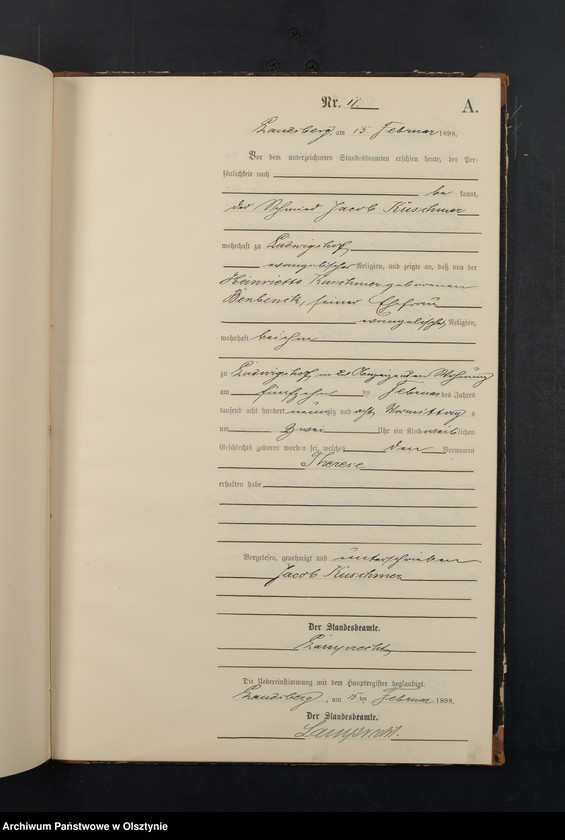 Nr. 11.
A.
Landsberg, am 15 Februar 1898.
Vor dem unterzeichneten Standesbeamten erschien heute, der Per-
sönlichkeit nach
be kannt,
der Schmied Jacob Kuschmer
wohnhaft zu Ludwigshof
evangelischer Religion, und zeigte an, daß von der
Heinrietta Kuschmer geborenen
seiner Ehefrau
evangelischer Religion,
wohnhaft bei ihm
zu Ludwigshof, in des Anzeigenden Wohnung
am fünfzehn ten Februar des Jahres
tausend acht hundert neunzig und acht, Vormittags
um zwei Uhr ein Kind weiblichen
Geschlechts geboren worden sei, welches den Vornamen
Therese
erhalten habe
Vorgelesen, genehmigt und unterschrieben
Jacob Kuschmer
Der Standesbeamte.
Lamprecht
Die Uebereinstimmung mit dem Hauptregister beglaubigt.
Landsberg, am 15 ten Februar 1898.
Der Standesbeamte.
Lamprecht.
Archiwum Państwowe w Olsztynie